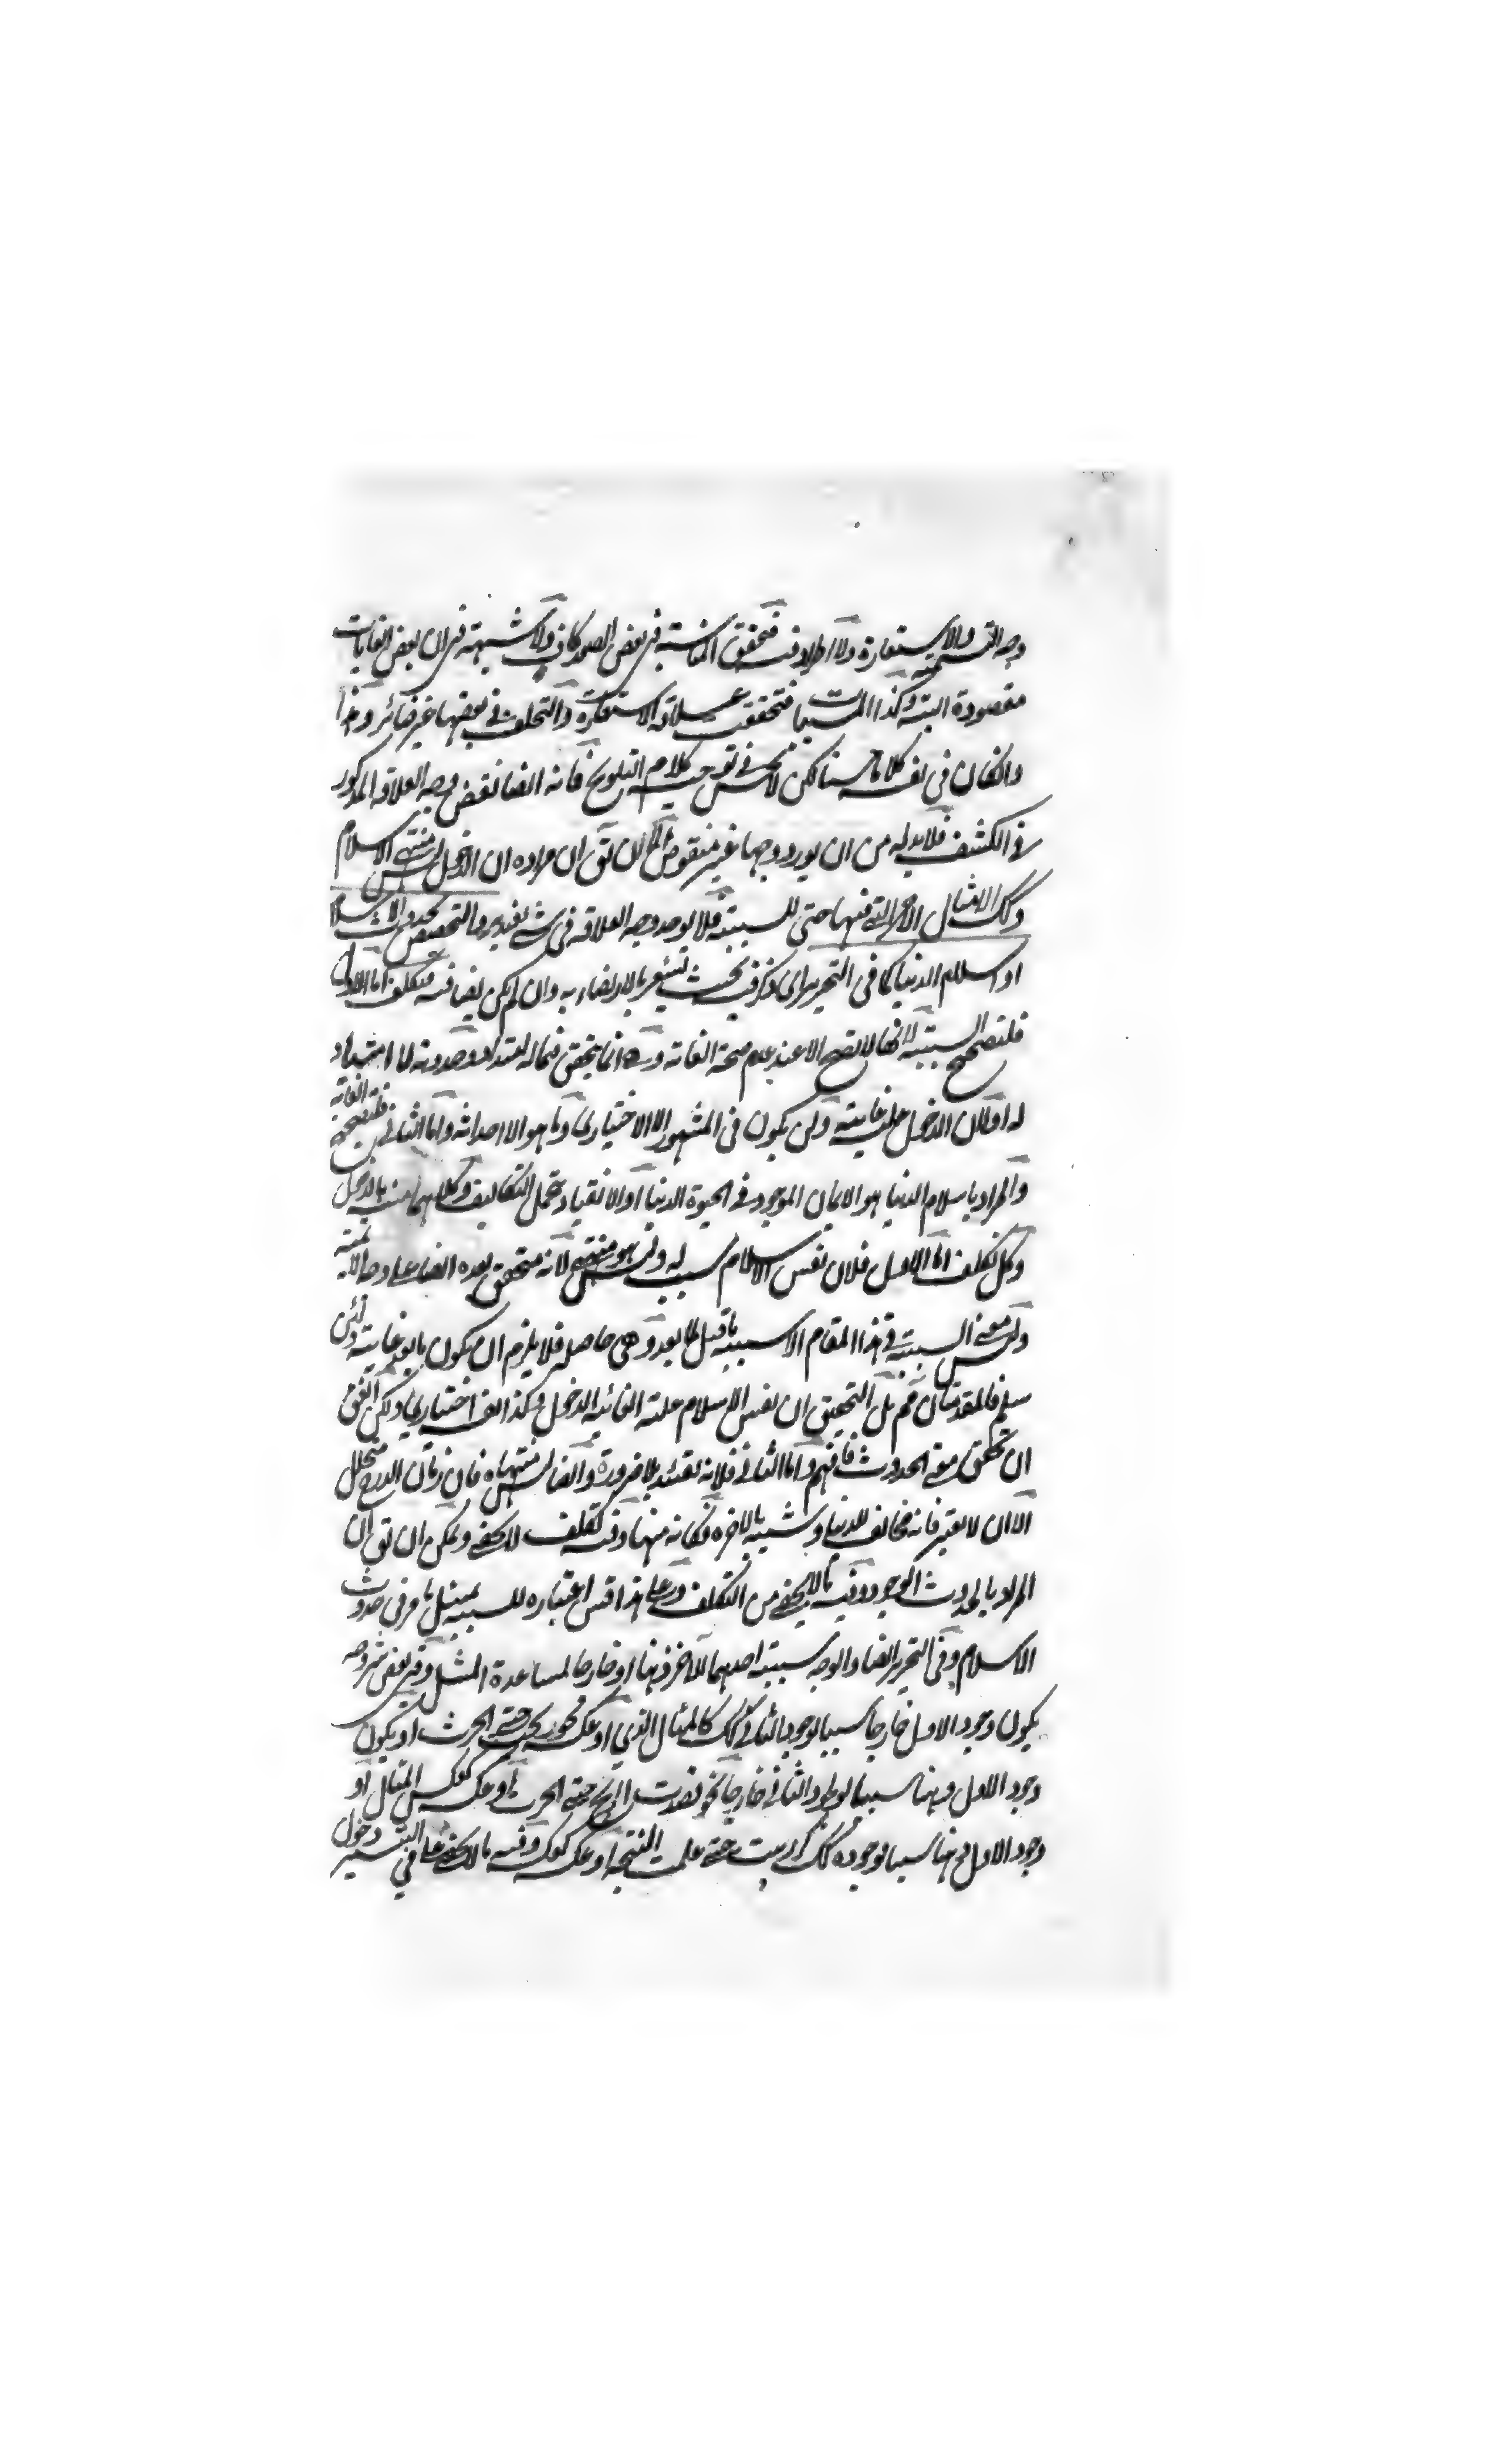 وجه التسمية والاستعارة ولا اطراد فيه فتحقق المناسبة في بعض الصور كاف ولا شبهة في ان بعض الغايات
مقصودة البتة وكذا المسببات فتحققت علاقة الاستعارة والتخلف في بعضها غير ضائر وهذا
وان كان في نفسه كلاما حسنا لكن لا يحسن في توجيه كلام التلويح فانه ايضا نقض وجه العلاقة المذكور
في الكشف فلا بد له من ان يورد وجها غير منقوض الا ان يق ان مراده ان الدخول ليس منتهى الاسلام
وكك الامثال الاخر التي فيها حتى للسببية فلا يوجد وجه العلاقة في شيء والتخصيص بحدوث الاسلام
او اسلام الدنيا كما في التحرير اي ذكر فيه بحيث يشعر بالارتضاء به وان لم يكن فيه تكلف اما الاول
فلتصحيح السببية لانها لا تصح الا عند عدم صحة الغاية وهي انما يتحقق فيما له امتداد وحدوثه لا امتداد
له اولا لان الدخول غايته ولن يكون في المشهور الا الاختياري وما هو الا احداثه واما الثاني فلتصحيح الغاية
والمراد باسلام الدنيا هو الايمان الموجود في الحيوة الدنيا او الانقياد بتحمل التكاليف وكلاهما منته بالدخول
وكل تكلف اما الاول فلان نفس الاسلام سبب له وليس هو منتهى لانه متحقق بعده ايضا على وجه الاتمية
وليس معنى السببية في هذا المقام الا سببية ما قبل لما بعد وهي حاصلة فلا يلزم ان يكون ما بعد غايته ولئن
سلم فالمقدمتان مم بل التحقيق ان نفس الاسلام علته الغائية الدخول وكذا انه اختياري ولكن اتفق
ان تحقق معنى الحدوث فافهم واما الثاني فلانه تقييد بلا ضرورة وايضا ليس منتهاه فان زمان البرزخ متخلل
الا ان لا يعتبر فانه مخالف للدنيا وشبيه بالاخرة فكانه منها وفيه تكلف لا يخفى ويمكن ان يق ان
المراد بالحدوث الوجود وفيه ما لا يخفى من التكلف وعلى هذا قس اعتباره للسببية بمثل ما مر في حدوث
الاسلام وفي التحرير ايضا والوجه سببية احدهما للآخر ذهنا او خارجا لمساعدة المثل وفي بعض شروحه
يكون وجود الاول خارجا سببا لوجود الثاني كك كالمثال الذي او عكسه نحو حتى الحرث او يكون
وجود الاول ذهنا سببا لوجود الثاني خارجا نحو حتى الحرث او عكسه كعكس المثال او
وجود الاول ذهنا سببا لوجوده كك حتى علمت النتيجة او عكسه كعكسه وفيه ما لا يخفى على في التفسير دخول